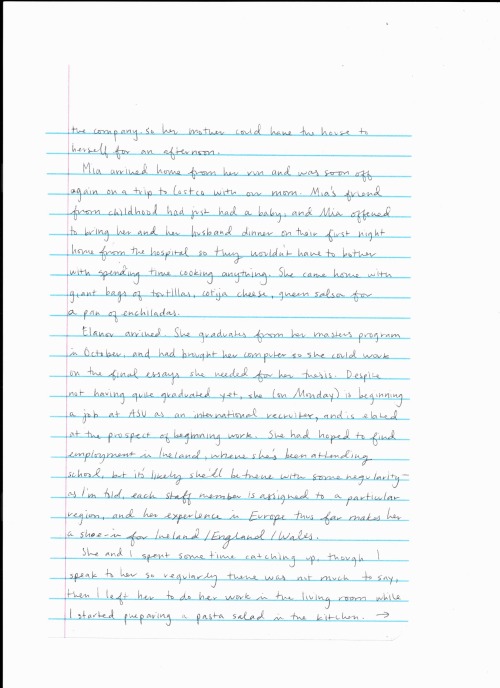 the company, so her mother could have the house to
herself for an afternoon.
Mia arrived home from her run and was soon off
again on a trip to Costco with our mom. Mia's friend
from childhood had just had a baby, and Mia offered
to bring her and her husband dinner on their first night
home from the hospital so they wouldn't have to bother
with spending time cooking anything. She came home with
giant bags of tortillas, cotija cheese, green salsa for
a pan of enchiladas.
Elanor arrived. She graduates from her masters program
in October, and had brought her computer so she could work
on the final essays she needed for her thesis. Despite
not having quite graduated yet, she (on Monday) is beginning
a job at ASU as an international recruiter, and is elated
at the prospect of beginning work. She had hoped to find
employment in Ireland, where she's been attending
school, but it's likely she'll be there with some regularity—
as I'm told, each staff member is assigned to a particular
region, and her experience in Europe thus far makes her
a shoe-in for Ireland/England/Wales.
She and I spent some time catching up, though I
speak to her so regularly there was not much to say,
then I left her to do her work in the living room while
I started preparing a pasta salad in the kitchen. →